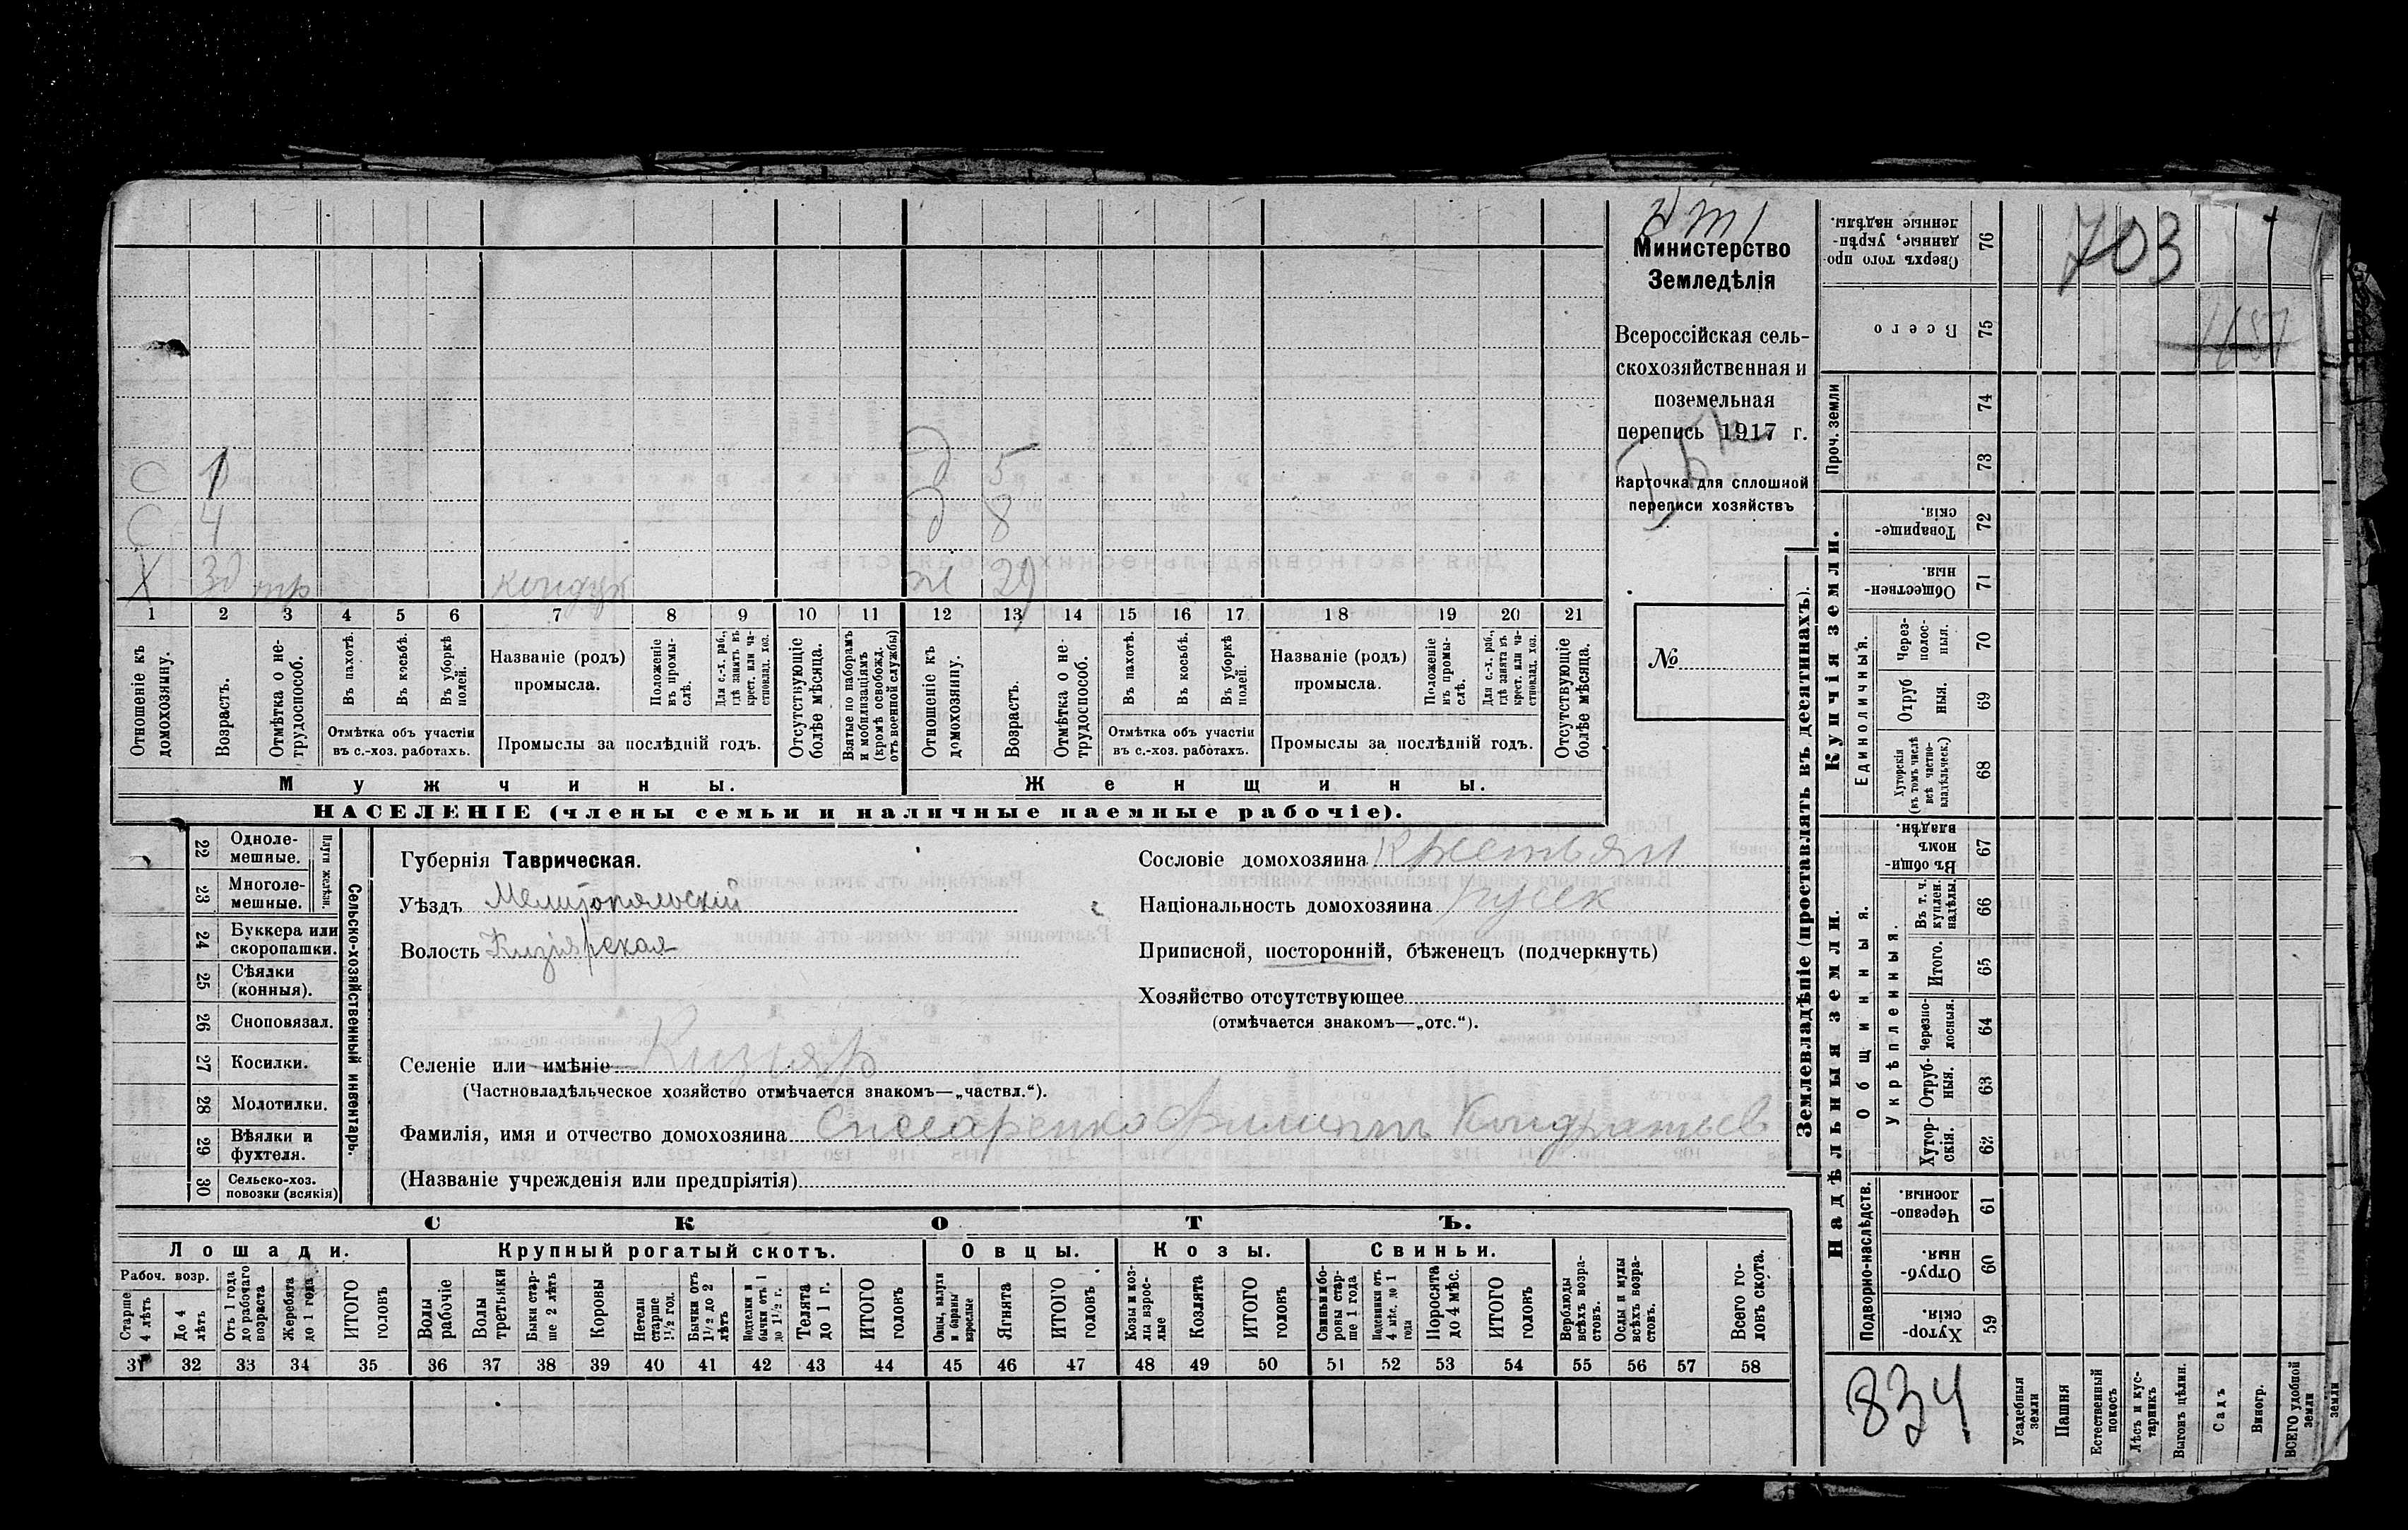 703
1651
Министерство
Земледѣлія
Всероссійская сель-
скохозяйственная и
поземельная
перепись 1917 г.
Карточка для сплошной
переписи хозяйствъ
№
С 1 д 5
С 4 д 8
Х 3д тр кондук ж 29
1 2 3 4 5 6 7 8 9 10 11 12 13 14 15 16 17 18 19 20 21
Отношеніе къ домохозяину.
Возрастъ.
Отмѣтка о не-трудоспособ.
Въ пахотѣ.
Въ косьбѣ.
Въ уборкѣ полей.
Отмѣтка объ участіи
въ с.-хоз. работахъ.
Названіе (родъ)
промысла.
Положеніе въ промы-слѣ.
Для с.-х. раб., гдѣ занятъ въ крест. или ча-стновлад. хоз.
Промыслы за послѣдній годъ.
Отсутствующіе болѣе мѣсяца.
Взятые по наборамъ и мобилизаціямъ (кромѣ освобожд. отъ военной службы)
Отношеніе къ домохозяину.
Возрастъ.
Отмѣтка о не-трудоспособ.
Въ пахотѣ.
Въ косьбѣ.
Въ уборкѣ полей.
Отмѣтка объ участіи
въ с.-хоз. работахъ.
Названіе (родъ)
промысла.
Положеніе въ промы-слѣ.
Для с.-х. раб., гдѣ занята въ крест. или ча-стновлад. хоз.
Промыслы за послѣдній годъ.
Отсутствующіе болѣе мѣсяца.
Мужчины. Женщины.
НАСЕЛЕНІЕ (члены семьи и наличные наемные рабочіе).
22 Одноле-мешные.
23 Многоле-мешные.
Плуги желѣзн.
24 Буккера или скоропашки.
25 Сѣялки (конныя).
26 Сноповязал.
27 Косилки.
28 Молотилки.
29 Вѣялки и фухтеля.
30 Сельско-хоз. повозки (всякія)
Сельско-хозяйственный инвентарь.
Губернія Таврическая.
Уѣздъ Мелитопольскій
Волость Кизіярская
Сословіе домохозяина Крестьян
Національность домохозяина русск
Приписной, посторонній, бѣженецъ (подчеркнуть)
Хозяйство отсутствующее
(отмѣчается знакомъ—„отс.“).
Селеніе или имѣніе Кизіяр
(Частновладѣльческое хозяйство отмѣчается знакомъ—„частвл.“).
Фамилія, имя и отчество домохозяина Слесаренко Филиппъ Кондратьев
(Названіе учрежденія или предпріятія)
СКОТЪ.
Лошади. Крупный рогатый скотъ. Овцы. Козы. Свиньи.
Рабоч. возр.
Старше 4 лѣтъ
До 4 лѣтъ
Отъ 1 года до рабочаго возраста
Жеребята до 1 года
ИТОГО головъ
Волы рабочіе
Волы третьяки
Быки стар-ше 2 лѣтъ
Коровы
Нетели старше 1½ год.
Бычки отъ 1½ до 2 лѣтъ
Подтелки и бычки отъ 1 до 1½ г.
Телята до 1 г.
ИТОГО головъ
Овцы, валухи и бараны взрослые
Ягнята
ИТОГО головъ
Козы и коз-лы взрос-лые
Козлята
ИТОГО головъ
Свиньи и бо-ровы стар-ше 1 года
Подсвинки отъ 4 мѣс. до 1 года
Поросята до 4 мѣс.
ИТОГО головъ
Верблюды всѣхъ возра-стовъ.
Ослы и мулы всѣхъ возра-стовъ.
Всего го-ловъ скота.
31 32 33 34 35 36 37 38 39 40 41 42 43 44 45 46 47 48 49 50 51 52 53 54 55 56 57 58
Землевладѣніе (проставлять въ десятинахъ).
Купчія земли.
Надѣльныя земли.
76 Сверхъ того про-данные, укрѣп-ленные надѣлы.
75 Всего
Проч. земли
74
73
72 Товарище-скія.
71 Обществен-ныя.
Единоличныя.
70 Через-полос-ныя.
69 Отруб-ныя.
68 Хуторскія (въ томъ числѣ всѣ частно-владѣльческ.)
67 Въ общин-номъ владѣн.
Общинныя.
Укрѣпленныя.
66 Въ т. ч. куплен. надѣлы.
65 Итого.
64 Черезпо-лосныя.
63 Отруб-ныя.
62 Хутор-скія.
Подворно-наслѣдств.
61 Черезпо-лосныя.
60 Отруб-ныя.
59 Хутор-скія.
834
Усадебныя земли
Пашня
Естественный покосъ
Лѣсъ и кус-тарникъ
Выгонъ цѣлин.
Садъ
Виногр.
ВСЕГО удобной земли
земли